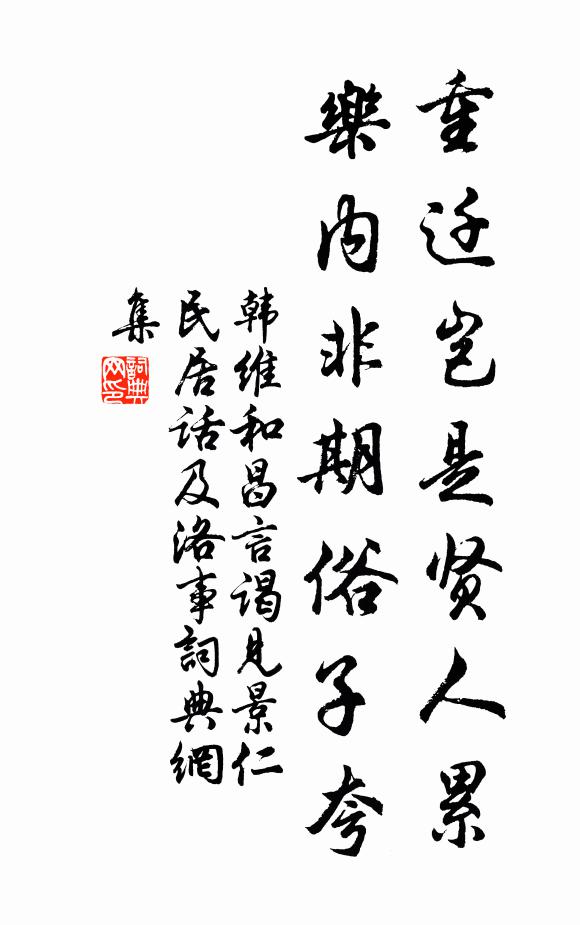 重迁岂是贤人累
樂内非期俗子夸
韩维和昌言谒见景仁
民居话及洛事詞典網
集
詞典
网印